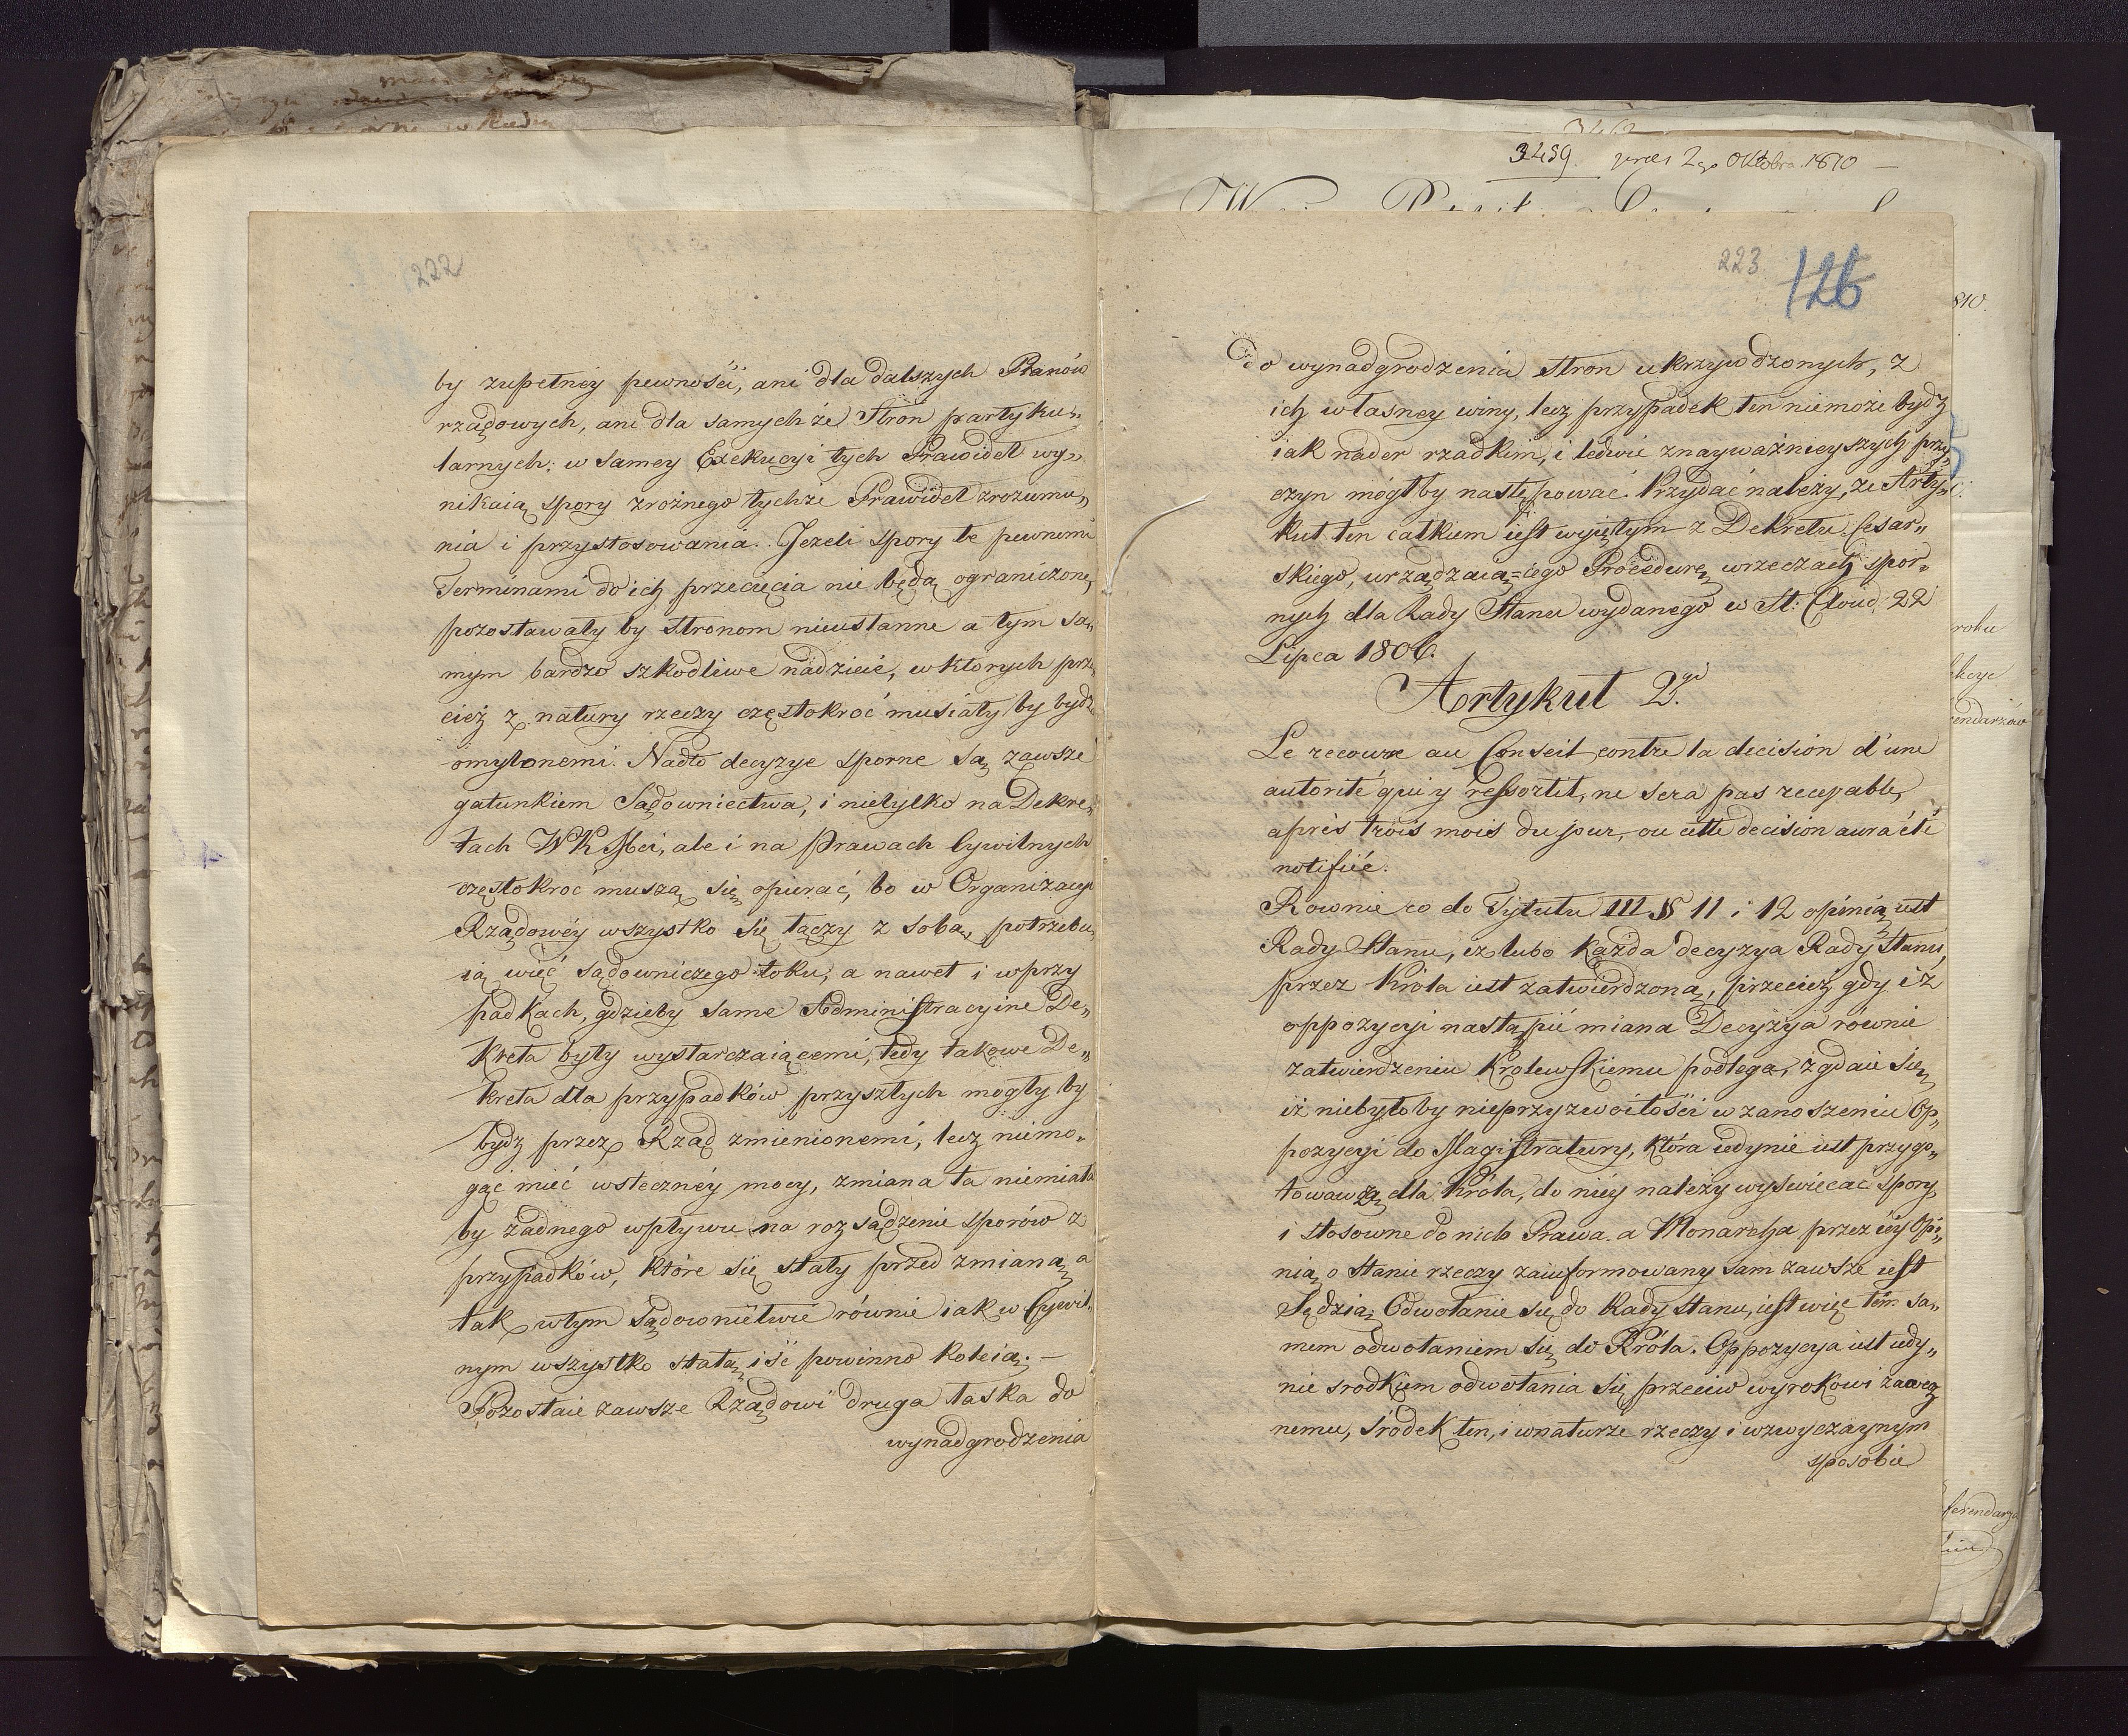 222
by zupełney pewności, ani dla dalszych Planów
rządowych, ani dla samychże Stron partyku„
larnych; w samey Exekucyi tych Prawideł wy„
nikaią spory zrożnego tychże Prawideł zrozumie„
nia i przystosowania. Jeżeli spory te pewnemi
Terminami do ich przecięcia nie będą ograniczone,
pozostawały by Stronom nieustanne a tym sa„
mym bardzo szkodliwe nadzieie, w ktorych prze„
cież z natury rzeczy częstokroć musiały by bydź
omylonemi. Nadto decyzye sporne są zawsze
gatunkiem Sądownictwa, i nietylko na Dekre„
tach WKMci, ale i na Prawach Cywilnych
częstokroć muszą się opierać, bo w Organizacyi
Rządowéy wszystko się łączy z sobą, potrzebu„
ią więc sądowniczego toku; a nawet i wprzy
padkach, gdzieby same Administracyine De„
kreta były wystarczaiącemi, tedy takowe De„
kreta dla przypadków przyszłych mogły by
bydź przez Rząd zmienionemi, lecz niemo„
gąc mieć wstecznéy mocy, zmiana ta niemiała
by żadnego wpływu na rozsądzenie sporów z
przypadków, które się stały przed zmianą, a
tak wtym Sądownictwie równie iak w Cywil„
nym wszystko stałą iść powinno koleią. —
Pozostaie zawsze Rządowi druga łaska do
wynadgrodzenia
3459. praes 2go Oktobra 1810 —
223
126
do wynadgrodzenia Stron ukrzywdzonych, z
ich własney winy, lecz przypadek ten niemoże bydź
iak nader rzadkim, i ledwie znayważnieyszych przy„
czyn mógłby następować. Przydać należy, że Arty„
kuł ten całkiem iest wyiętym z Dekretu Cesar„
skiego, urządzaią=cego Procedurę wrzeczach spor„
nych dla Rady Stanu wydanego w St: Cloud 22
Lipca 1806.
Artykuł 2.gi
Le recours au Conseil contre la decision d'une
autorité qui y ressortit, ne sera pas recevable,
aprés trois mois du jour, ou cette decision aura été
notifiée.
Rownie co do Tytułu III §§ 11 i 12 opinią iest
Rady Stanu, iż lubo każda decyzya Rady Stanu,
przez Króla iest zatwierdzoną, przecież gdy i z
oppozycyi nastąpić miana Decyzya równie
zatwierdzeniu Krolewskiemu podlega, zgdaie się,
iż niebyłoby nieprzyzwoitości w zanoszeniu Op„
pozycyi do Magistratury, która iedynie iest przygo„
towawczą dla Króla, do niéy należy wyświecać spory
i stosowne do nich Prawa, a Monarcha przez iéy Opi„
nią o stanie rzeczy zainformowany sam zawsze iest
Sędzią. Odwołanie się do Rady Stanu, iest więc tém sa„
mem odwołaniem się do Króla. Oppozycya iest iedy„
nie srodkiem odwołania się przeciw wyrokowi zaocz
nemu, środek ten, i wnaturze rzeczy i wzwyczaynym
sposobie
810.
roku
endarzów
ferendarza